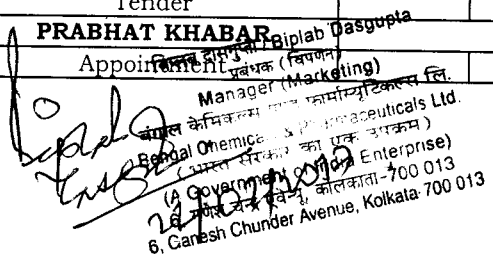 Tender
PRABHAT KHABAR
Appointment
बिप्लब दासगुप्ता / Biplab Dasgupta
प्रबंधक (विपणन)
Manager (Marketing)
बंगाल केमिकल्स एण्ड फार्मास्युटिकल्स लि.
Bengal Chemicals & Pharmaceuticals Ltd.
(भारत सरकार का एक उपक्रम)
(A Government of India Enterprise)
6, गणेश चन्द्र एवेन्यू, कोलकाता-700 013
6, Ganesh Chunder Avenue, Kolkata-700 013
Biplab